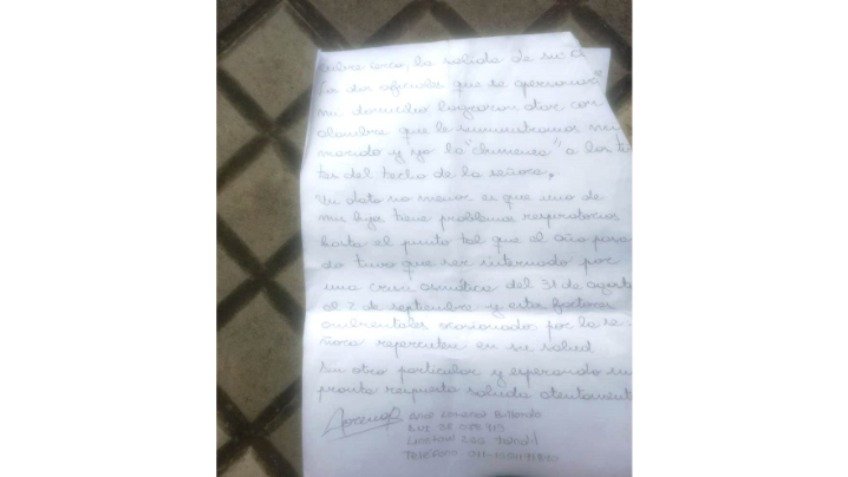 cubre cerco, la salida de su
Los dos oficiales que se apersonaron
mi domicilio lograron dar con
alambre que le suministramos mi
marido y yo la "chimenea", a los
tes del techo de la señora.
Un dato no menor es que uno de
mis hijos tiene problemas respiratorios
hasta el punto tal que el año pasa
do tuvo que ser internado por
una crisis asmática del 31 de agosto
al 2 de septiembre y estos factores
ambientales ocasionados por la se-
ñora repercuten en su salud
Sin otro particular y esperando una
pronta respuesta saluda atentamente
Lorena